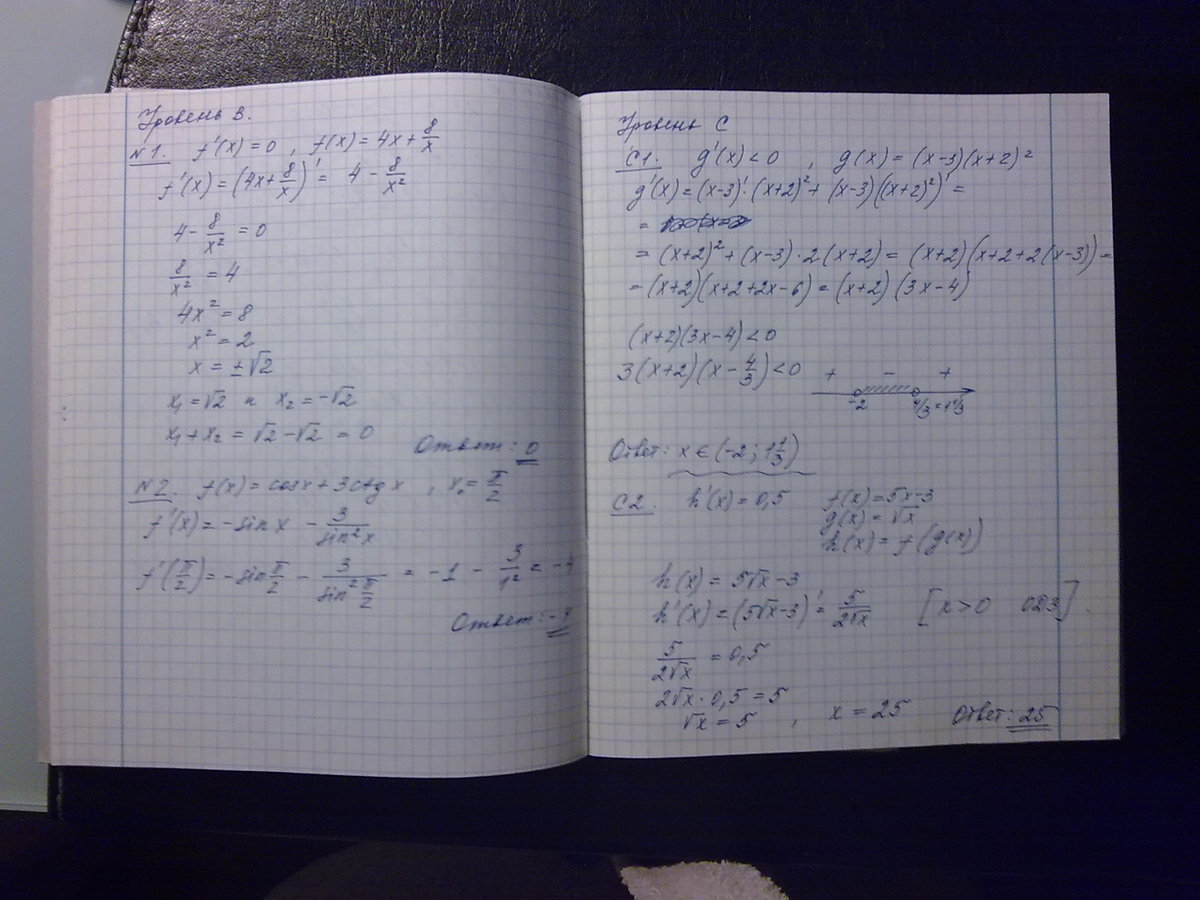 Уровень В.
№1. f'(x) = 0 , f(x) = 4x + 8/x
f'(x) = (4x + 8/x)' = 4 - 8/x²
4 - 8/x² = 0
8/x² = 4
4x² = 8
x² = 2
x = ±√2
x₁ = √2 и x₂ = -√2
x₁ + x₂ = √2 - √2 = 0
Ответ: 0
№2. f(x) = cosx + 3ctgx , x₀ = π/2
f'(x) = -sinx - 3/sin²x
f'(π/2) = -sin π/2 - 3/sin² π/2 = -1 - 3/1² = -4
Ответ: -4
Уровень С
С1. g'(x) < 0 , g(x) = (x-3)(x+2)²
g'(x) = (x-3)'·(x+2)² + (x-3)((x+2)²)' =
=
= (x+2)² + (x-3)·2(x+2) = (x+2)(x+2+2(x-3)) =
= (x+2)(x+2+2x-6) = (x+2)(3x-4)
(x+2)(3x-4) < 0
3(x+2)(x - 4/3) < 0 + - +
-2 4/3 = 1 1/3
Ответ: x ∈ (-2; 1 1/3)
С2. h'(x) = 0,5 f(x) = 5x-3
g(x) = √x
h(x) = f(g(x))
h(x) = 5√x - 3
h'(x) = (5√x - 3)' = 5/2√x [x > 0 ОДЗ].
5/2√x = 0,5
2√x · 0,5 = 5
√x = 5 , x = 25 Ответ: 25